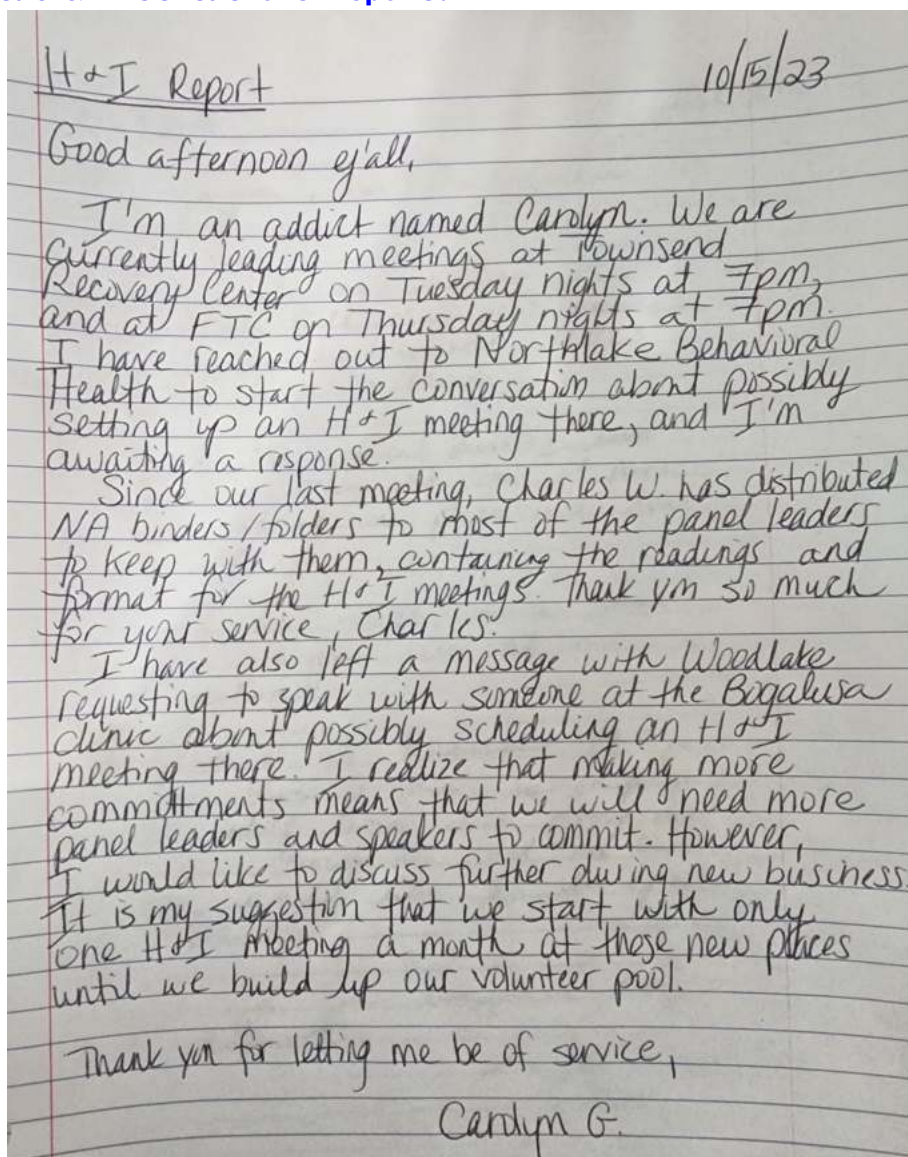 H & I Report 10/15/23
Good afternoon y'all,
I'm an addict named Carolyn. We are
currently leading meetings at Townsend
Recovery Center on Tuesday nights at 7pm,
and at FTC on Thursday nights at 7pm.
I have reached out to Northlake Behavioral
Health to start the conversation about possibly
setting up an H & I meeting there, and I'm
awaiting a response.
Since our last meeting, Charles W. has distributed
NA binders/folders to most of the panel leaders
to keep with them, containing the readings and
format for the H & I meetings. Thank you so much
for your service, Charles.
I have also left a message with Woodlake
requesting to speak with someone at the Bogalusa
clinic about possibly scheduling an H & I
meeting there. I realize that making more
commitments means that we will need more
panel leaders and speakers to commit. However,
I would like to discuss further during new business.
It is my suggestion that we start with only
one H & I meeting a month at these new places
until we build up our volunteer pool.
Thank you for letting me be of service,
Carolyn G.